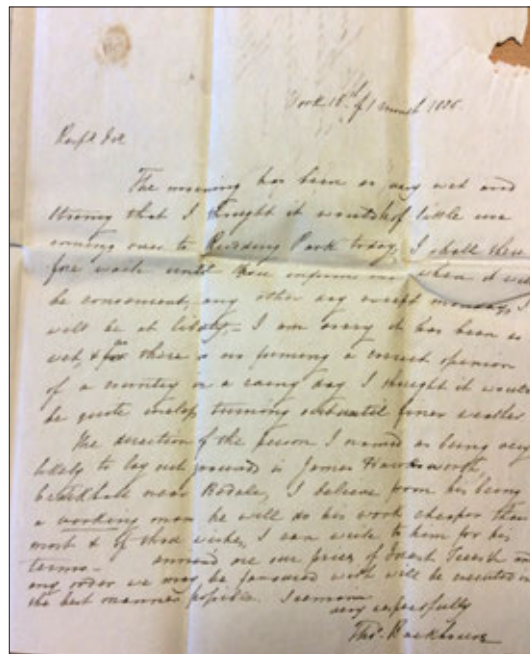 York 18th of 1 month 1836.
Respd Sir
The morning has been so very wet and
strong that I thought it would be of little use
coming over to Rudding Park today, I shall there
fore wait until thou inform me when it will
be convenient, any other day except monday, I
will be at liberty - I am sorry it has been so
wet, & there is no forming a correct opinion
of a country on a rainy day I thought it would
be quite useless turning out until finer weather
The direction of the person I named as being very
likely to lay out grounds is James Hawksworth,
Crakehall near Bedale, I believe from his being
a working man he will do his work cheaper than
most & if thou wishes, I can write to him for his
terms - annexed are our prices of Forest Trees & on
any order we may be favoured with will be executed in
the best manner possible. I remain
very respectfully
Thos. Backhouse